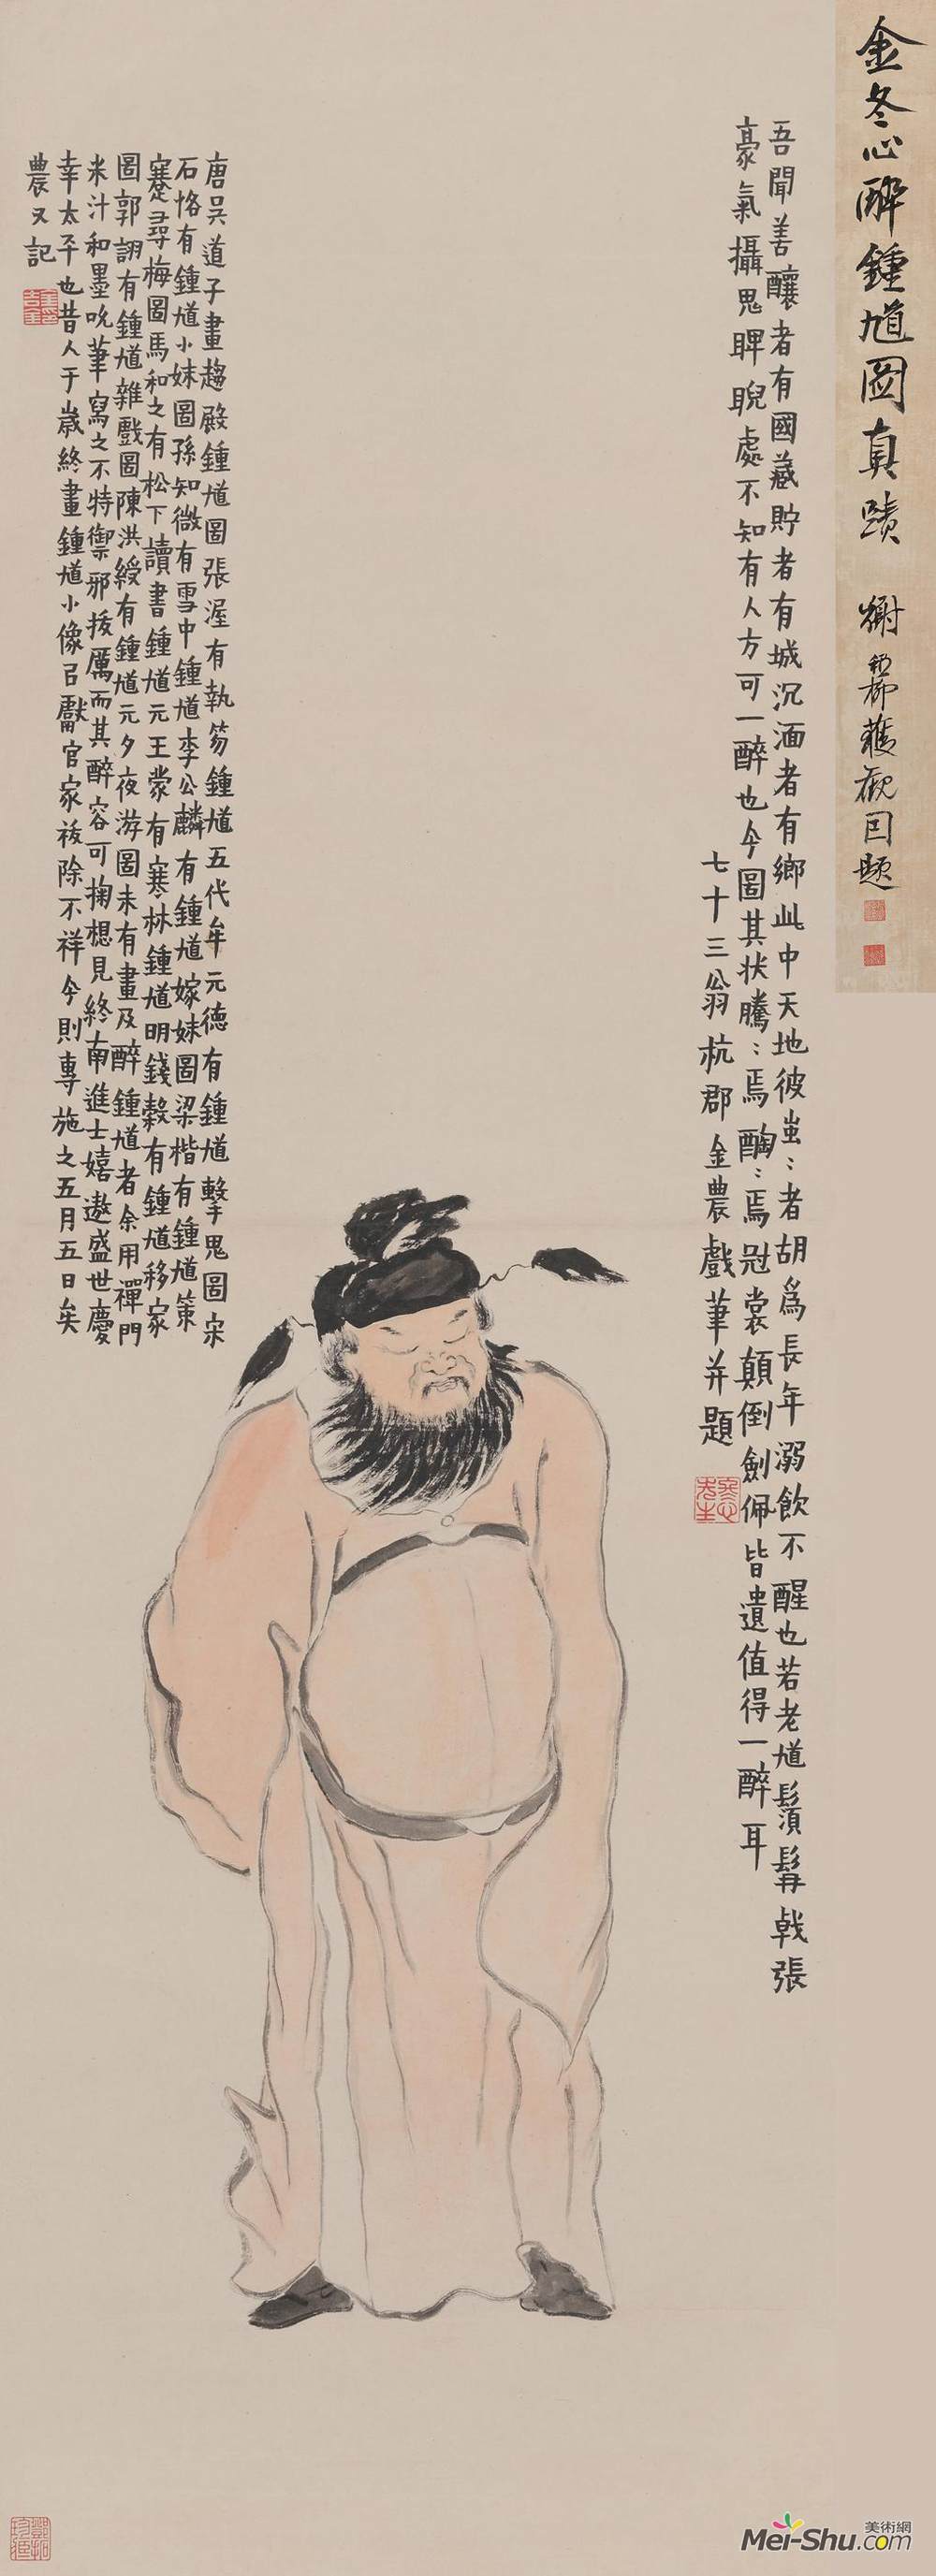 金冬心醉鍾馗圖真蹟
吾聞善釀者有國藏貯者有城沉湎者有鄉此中天地彼蚩:者胡為長年溺飲不醒也若老馗鬚髯戟張
豪氣攝鬼睥睨處不知有人方可一醉也今圖其狀騰:焉酶:焉冠裳顛倒劍佩皆遺值得一醉耳
七十三翁杭郡金農戲筆并題
唐吳道子畫趨殿鍾馗圖張渥有執笏鍾馗五代牟元德有鍾馗擊鬼圖宋
石恪有鍾馗小妹圖孫知微有雪中鍾馗李公麟有鍾馗嫁妹圖梁楷有鍾馗策
蹇尋梅圖馬和之有松下讀書鍾馗元王蒙有寒林鍾馗明錢穀有鍾馗移家
圖郭詡有鍾馗雜戲圖陳洪綬有鍾馗元夕夜游圖未有畫及醉鍾馗者余用禪門
米汁和墨吮筆寫之不特禦邪抜厲而其醉容可掬想見終南進士嬉遨盛世慶
幸太平也昔人于歲終畫鍾馗小像㠯獻官家祓除不祥今則專施之五月五日矣
農又記
美術網
Mei-Shu.com